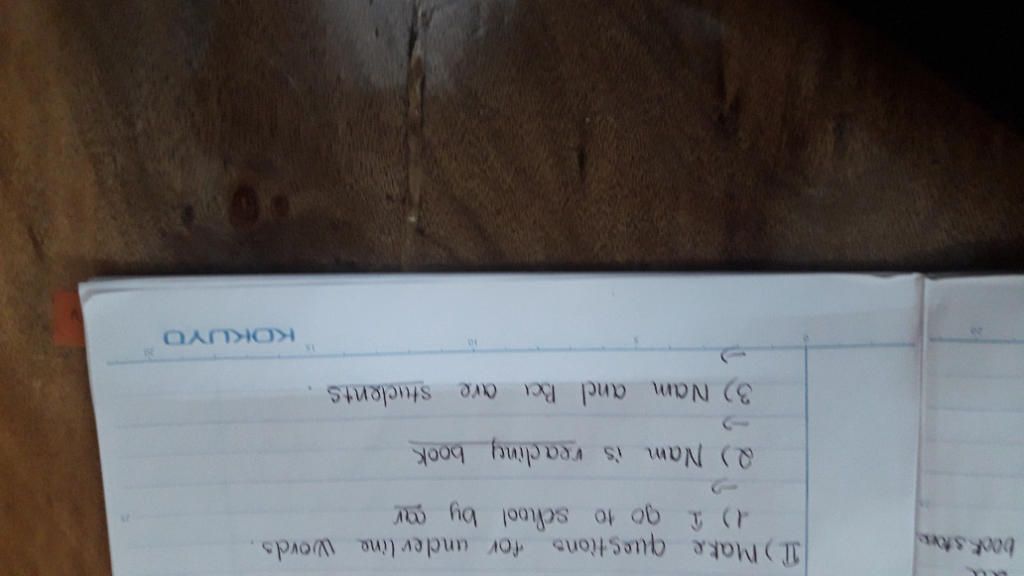 II) Make questions for underline words.
1) I go to school by car
→
2) Nam is reading book
→
3) Nam and Ba are students.
→
0 5 10 15 20
KOKUYO
book store
20